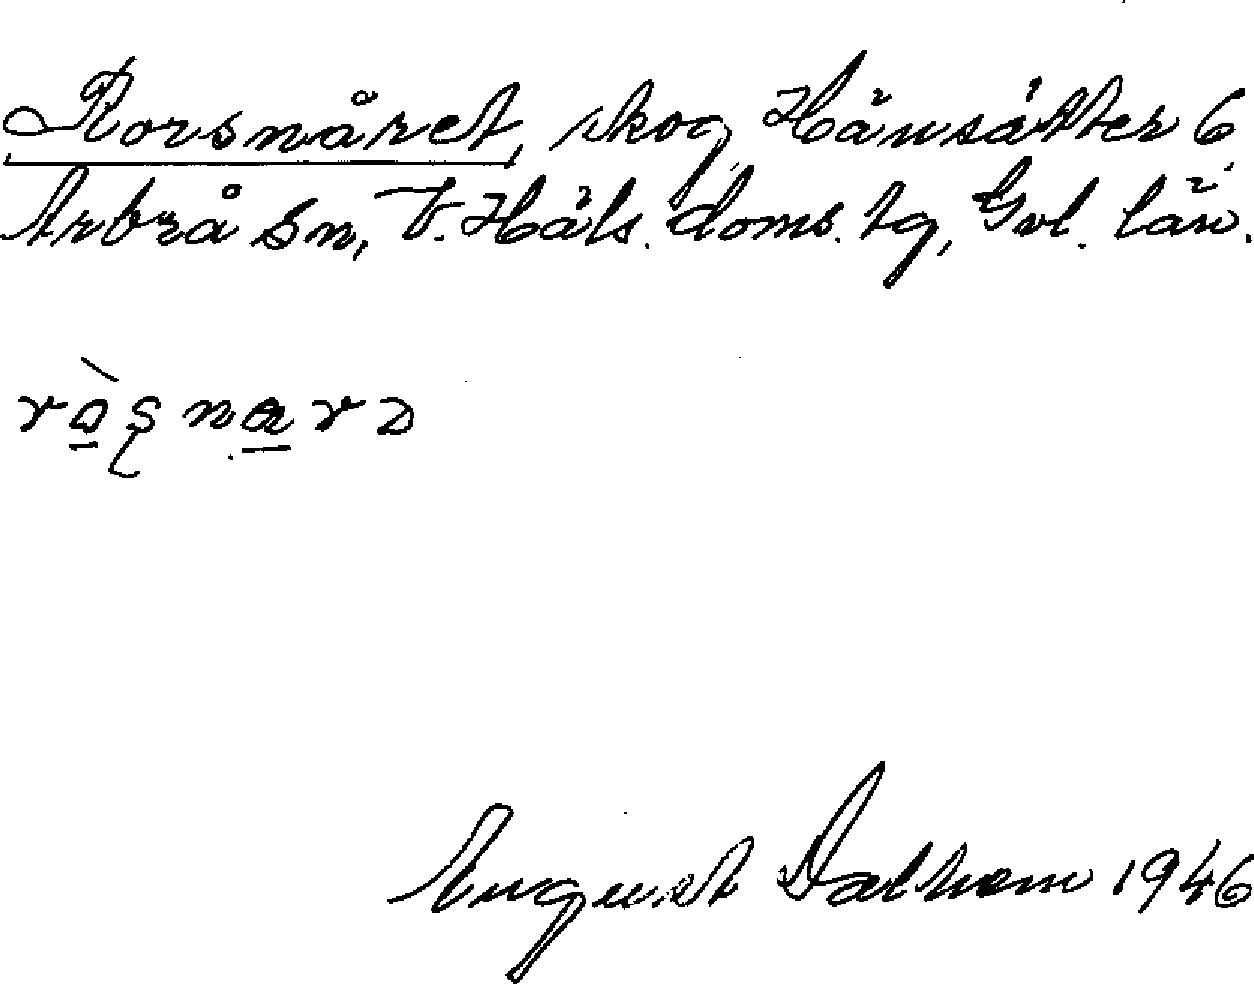 Rorsnåret, skog, Hänsätter 6
Arbrå sn, V. Häls. doms. tg, Gvl. län.
August Dalhem 1946